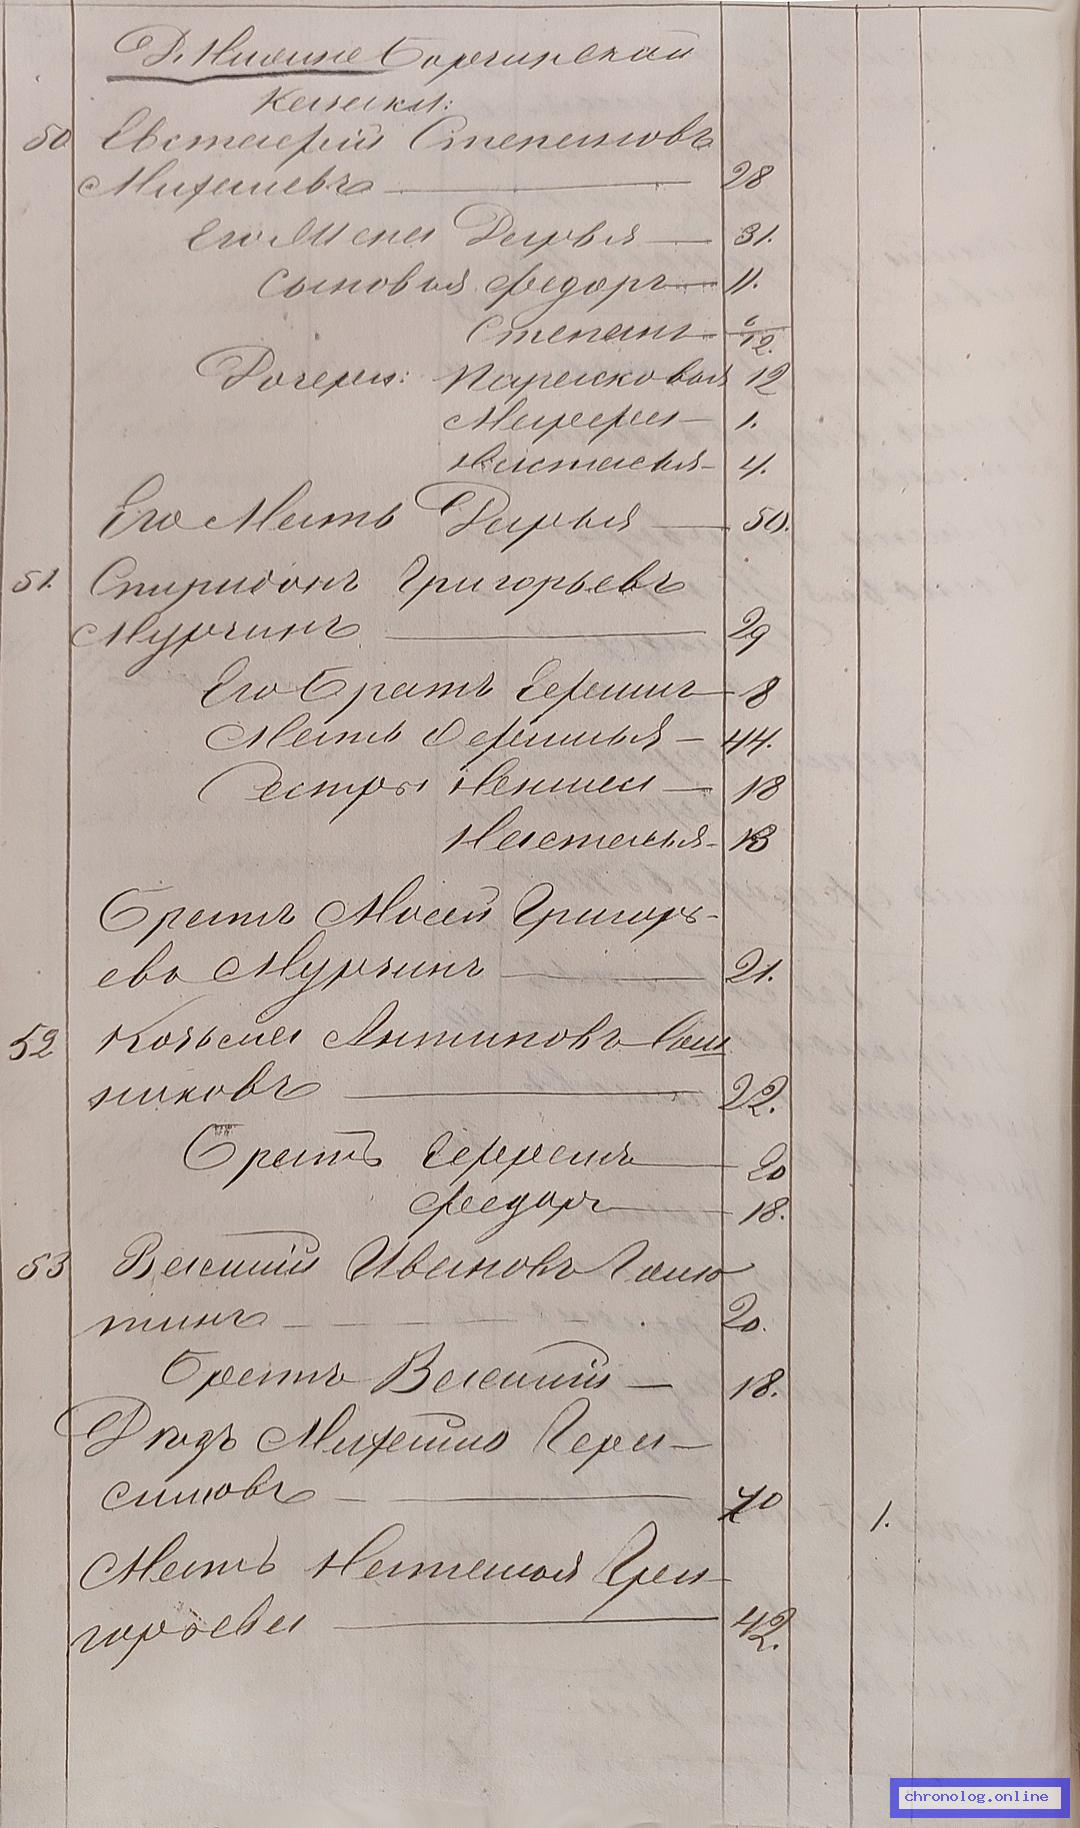 Д. Нижне Борчинской
Качаки:
50 Евстафій Степановъ
Михалевъ 28
Его Жена Дарья 31.
Сыновья Федоръ 11.
Степанъ 6/12.
Дочери: Парасковья 12
Марфа 1.
Настасья 4.
Его Мать Дарья 50.
51. Спиридонъ Григорьевъ
Мурчинъ 29
Его Братъ Ефимъ 8
Мать Офимья 44.
Сестры Ненила 18
Настасья 13
Братъ Мосей Григорь-
евъ Мурчинъ 21.
52 Козьма Антиповъ
никовъ 22.
Братъ 20
Федоръ 18.
53 Василій Ивановъ Галю
тинъ 20.
Братъ Василій 18.
Дядя Михайло Гера-
симовъ 70 1.
Мать Наталья Гри-
горьева 42.
chronolog.online